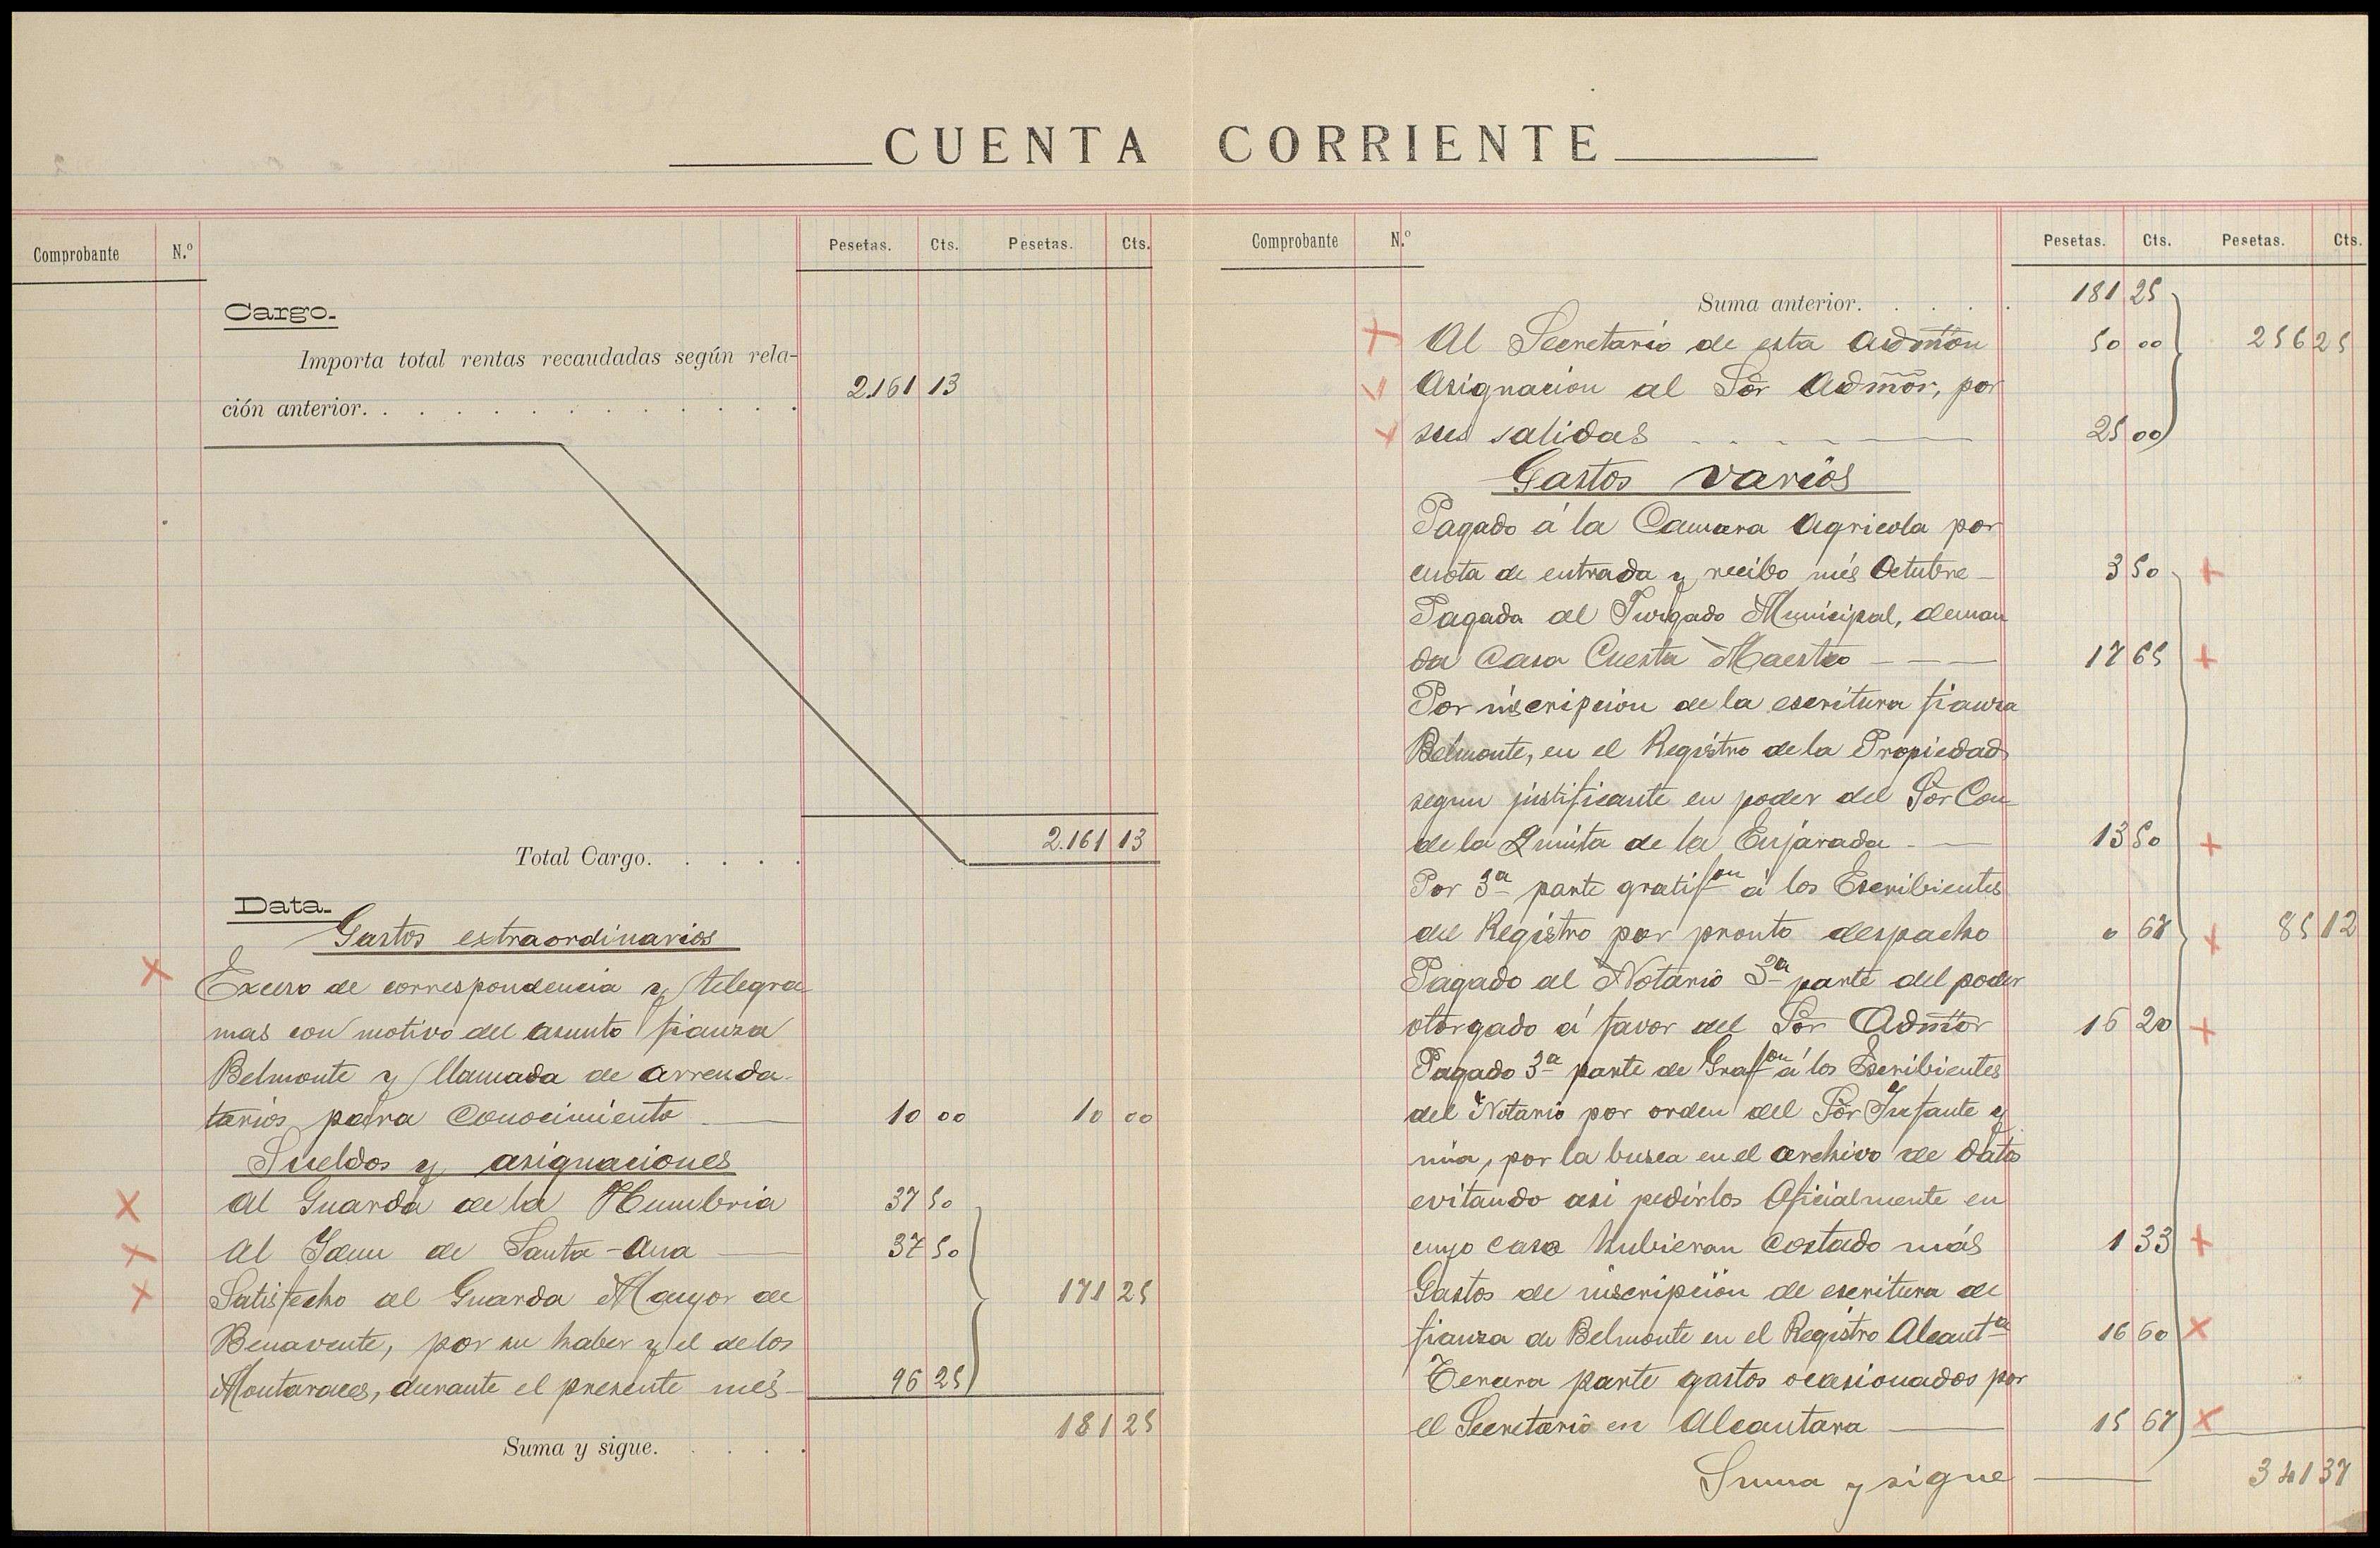 CUENTA CORRIENTE
Comprobante N.º Pesetas. Cts. Pesetas. Cts.
Cargo.
Importa total rentas recaudadas según rela-
ción anterior. 2.161 13
Total Cargo. 2.161 13
Data.
Gastos extraordinarios
Exceso de correspondencia y telegra
mas con motivo del asunto fianza
Belmonte y llamada de arrenda-
tarios para conocimiento 10 00 10 00
Sueldos y asignaciones
Al Guarda de la Humbria 37 50
Al Idem de Santa-Ana 37 50
Satisfecho al Guarda Mayor de 171 25
Benavente, por su haber y el de los
Montaraces, durante el presente més 96 25
Suma y sigue. 181 25
Comprobante N.º Pesetas. Cts. Pesetas. Cts.
Suma anterior. 181 25
Al Secretario de esta Admōn 50 00 256 25
Asignacion al Sōr Admōr, por
sus salidas 25 00
Gastos varios
Pagado á la Camara Agricola por
cuota de entrada y recibo més Octubre 3 50
Pagada al Juzgado Municipal, deman
da Casa Cuesta Maestro 17 65
Por inscripcion de la escritura fianza
Belmonte, en el Registro de la Propiedad
segun justificante en poder del Sōr Con
de la Quinta de la Enjarada 13 50
Por 3ª parte gratifon á los Escribientes
del Registro por pronto despacho 0 67 85 12
Pagado al Notario 3ª parte del poder
otorgado á favor del Sōr Admōr 16 20
Pagado 3ª parte de Grafon á los Escribientes
del Notario por orden del Sōr Infante y
mia, por la busca en el archivo de datos
evitando asi pedirlos Oficialmente en
cuyo caso hubieran costado más 1 33
Gastos de inscripción de escritura de
fianza de Belmonte en el Registro Alcantª 16 60
Tercera parte gastos ocasionados por
el Secretario en Alcantara 15 67
Suma y sigue 341 37